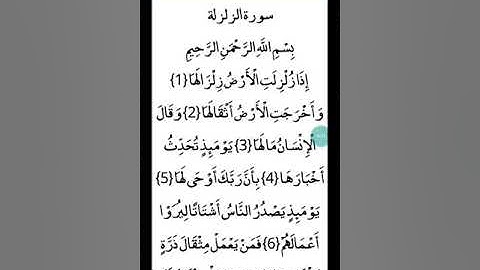 سورة الزلزلة
بِسْمِ اللَّهِ الرَّحْمَنِ الرَّحِيمِ
إِذَا زُلْزِلَتِ الْأَرْضُ زِلْزَالَهَا {1}
وَأَخْرَجَتِ الْأَرْضُ أَثْقَالَهَا {2} وَقَالَ
الْإِنْسَانُ مَا لَهَا {3} يَوْمَئِذٍ تُحَدِّثُ
أَخْبَارَهَا {4} بِأَنَّ رَبَّكَ أَوْحَى لَهَا {5}
يَوْمَئِذٍ يَصْدُرُ النَّاسُ أَشْتَاتًا لِيُرَوْا
أَعْمَالَهُمْ {6} فَمَنْ يَعْمَلْ مِثْقَالَ ذَرَّةٍ